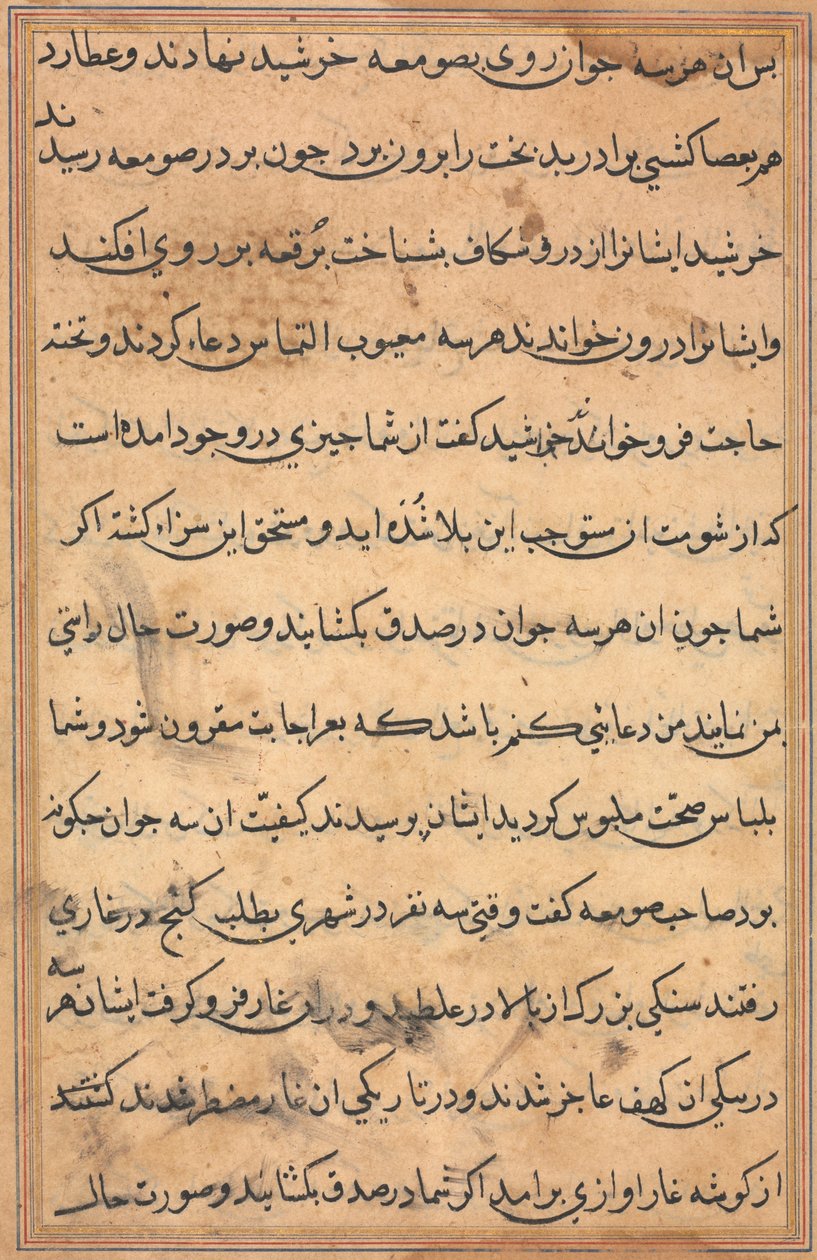 بس ان هر سه جوان روی بصومعه خرشید نهادند وعطارد
هم بعصا کشیی برادر بدبخت را برون برد جون بر در صومعه رسیدند
خرشید ایشانرا از در و شکاف بشناخت بُرقعه بر روي افکند
وایشانرا درون خواندند هر سه معیوب التماس دعاء کردند و تخته
حاجت فرو خواندند خرشید کفت از شما جیزي در وجود امده است
که از شومت ان مستوجب این بلا شُدَه اید و مستحق این سزاء کشته اکر
شما جون ان هر سه جوان در صدق بکشایند وصورت حال راستي
بمن نمایند من دعایي کنم باشد که بعز اجابت مقرون شود و شما
بلباس صحّت ملبوس کردید ایشان پرسیدند کیفیّت ان سه جوان جکونه
بود صاحب صومعه کفت وقتي سه نفر در شهري بطلب کنج در غاري
رفتند سنکي بزرک از بالا در غلطید و در ان غار فرو کرفت ایشان هر سه
در تنکي ان کهف عاجز شدند و در تاریکي ان غار مضطر شدند کفتند
از کوشه غار اوازي برامد اکر شما در صدق بکشایند و صورت حال